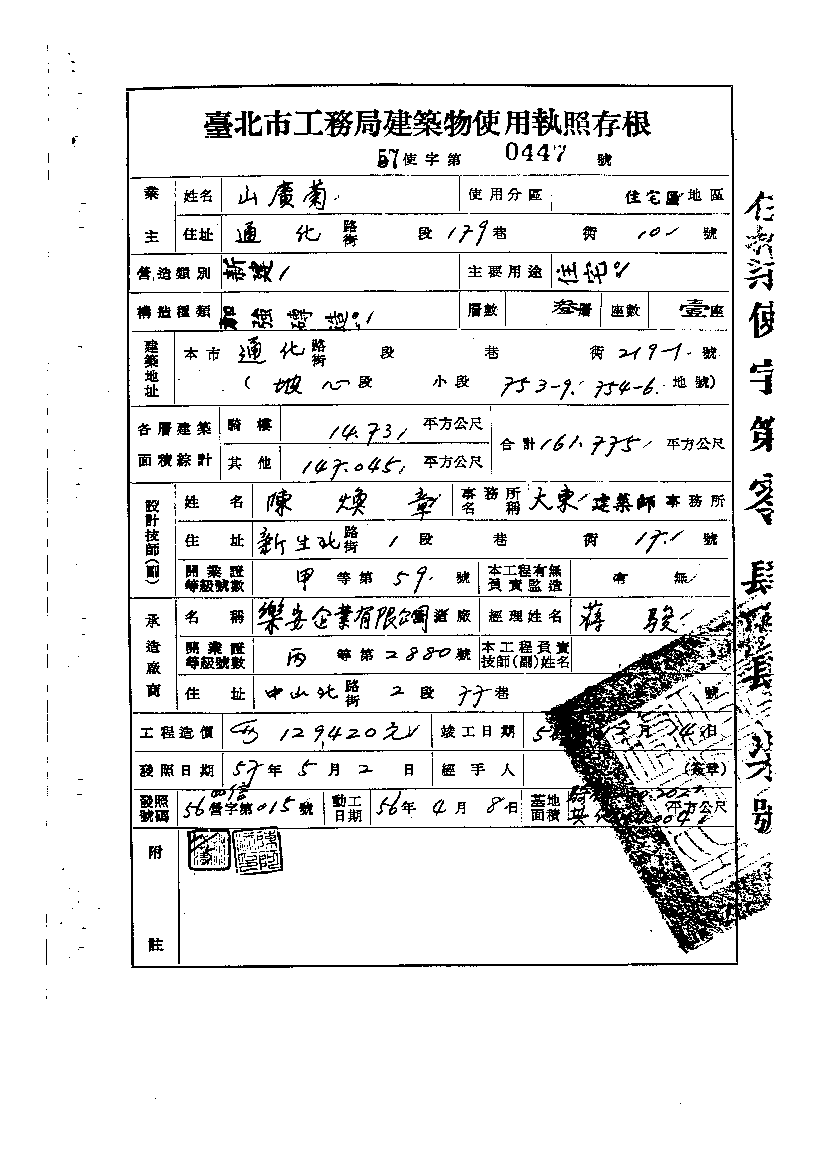 臺北市工務局建築物使用執照存根
57使字第 0447 號
業主 姓名 山廣菊 使用分區 住宅區地區
住址 通化 路街 段 179巷 街 101 號
營造類別 新建 主要用途 住宅
構造種類 加強磚造 層數 叁層 座數 壹座
建築地址 本市 通化 路街 段 巷 街 219-1 號
( 坡心段 小段 753-9. 754-6. 地號)
各層建築面積綜計 騎樓 14.731 平方公尺 合計 161.775 平方公尺
其他 147.045 平方公尺
設計技師(副) 姓名 陳煥章 事務所名稱 大東建築師事務所
住址 新生北 路街 1段 巷 街 17.1 號
開業證等級號數 甲等第59號 本工程有無負責監造 有 無
承造廠商 名稱 樂安企業有限公司 營造廠 經理姓名 蔣駿
開業證等級號數 丙等第2880號 本工程負責技師(副)姓名
住址 中山北 路街 2段 77巷 號
工程造價 129420元 竣工日期 月 14日
發照日期 57年5月2日 經手人 (簽章)
發照號碼 56營字第015號 動工日期 56年4月8日 基地面積 平方公尺
附註
使字第零
號